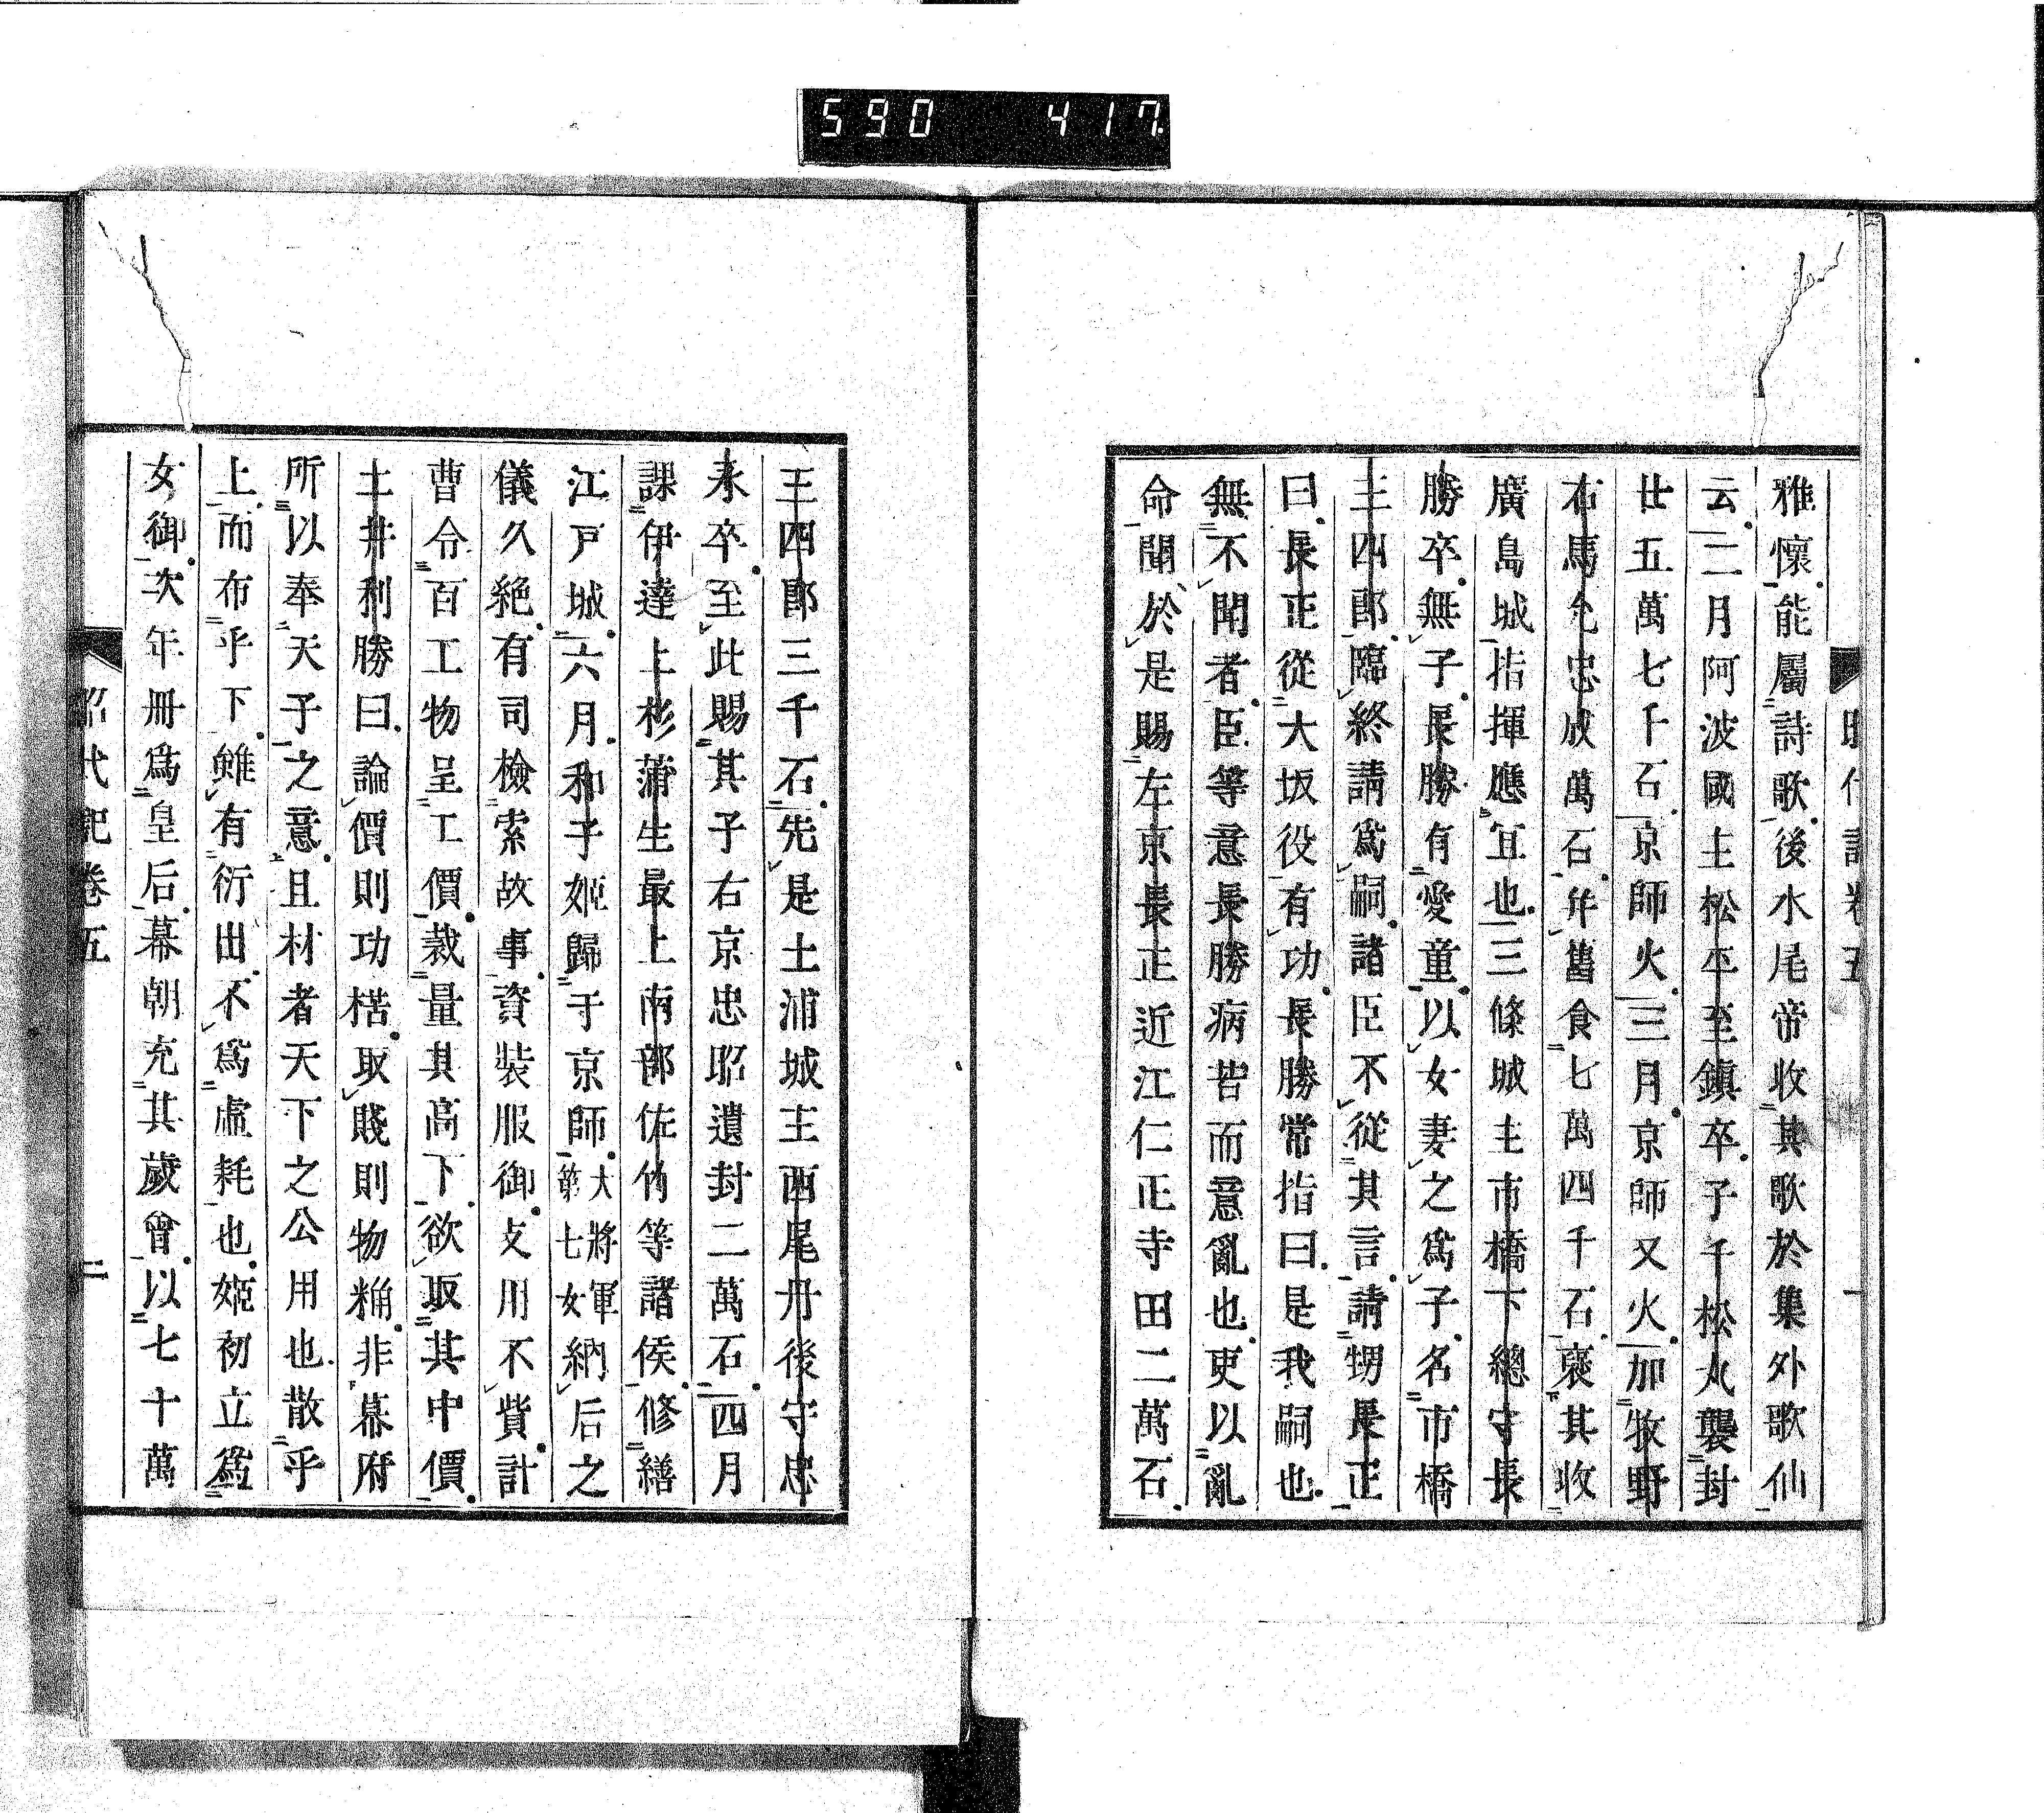 590 417
昭代記卷五 一
雅懷能屬詩歌後水尾帝收其歌於集外歌仙
云二月阿波國主松平至鎮卒子千松丸襲封
廿五萬七千石京師火三月京師又火加牧野
右馬允忠成萬石幷舊食七萬四千石褒其收
廣島城指揮應宜也三條城主市橋下總守長
勝卒無子長勝有愛童以女妻之爲子名市橋
三四郎臨終請爲嗣諸臣不從其言請甥長正
曰長正從大坂役有功長勝常指曰是我嗣也
無不聞者臣等意長勝病苦而意亂也更以亂
命聞於是賜左京長正近江仁正寺田二萬石
三四郎三千石先是土浦城主西尾丹後守忠
永卒至此賜其子右京忠昭遺封二萬石四月
課伊達上杉蒲生最上南部佐竹等諸侯修繕
江戸城六月和子姬歸于京師大將軍第七女納后之
儀久絶有司檢索故事資裝服御支用不貲計
曹令百工物呈工價裁量其高下欲取其中價
土井利勝曰論價則功楛取賤則物粗非幕府
所以奉天子之意且材者天下之公用也散乎
上而布乎下雖有衍出不爲虛耗也姬初立爲
女御次年冊爲皇后幕朝充其歲會以七十萬
昭代記卷五 二